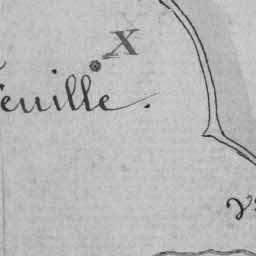 X
euille.